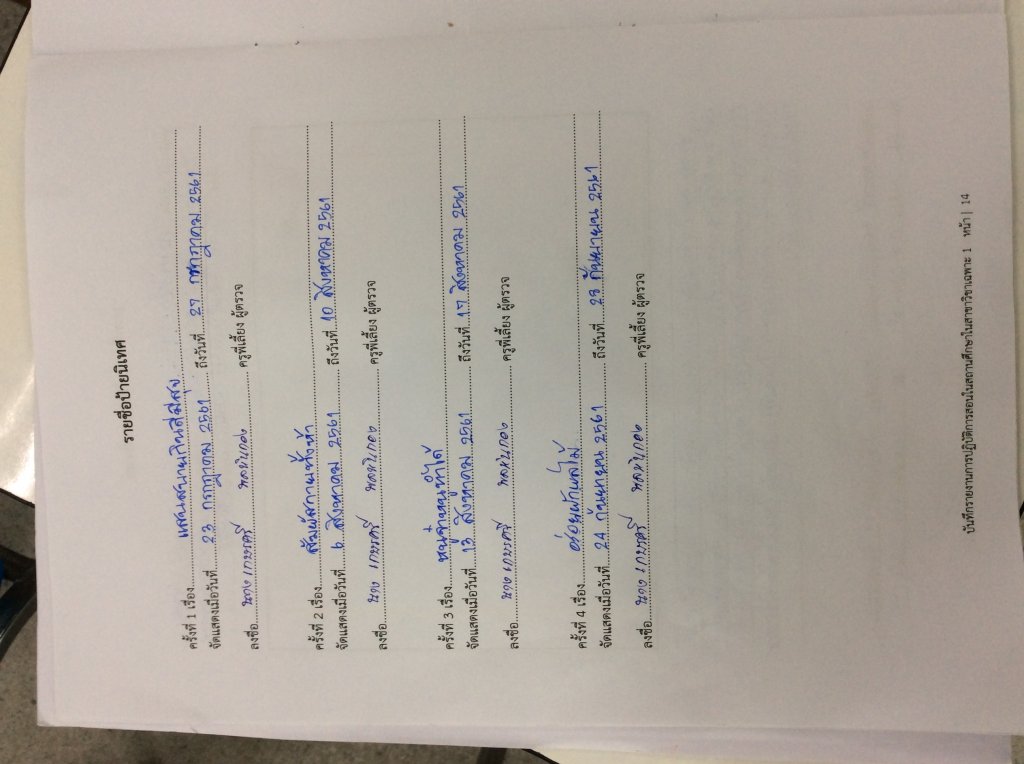 รายชื่อป้ายนิเทศ
ครั้งที่ 1 เรื่อง แสนสบายวันสีสุข
จัดแสดงเมื่อวันที่ 23 กรกฎาคม 2561 ถึงวันที่ 27 กรกฎาคม 2561
ลงชื่อ นางเกษรศรี ครูพี่เลี้ยง ผู้ตรวจ
ครั้งที่ 2 เรื่อง สัมผัสกายทั้งห้า
จัดแสดงเมื่อวันที่ 6 สิงหาคม 2561 ถึงวันที่ 10 สิงหาคม 2561
ลงชื่อ นางเกษรศรี ครูพี่เลี้ยง ผู้ตรวจ
ครั้งที่ 3 เรื่อง หนูจ๋าหนูทำได้
จัดแสดงเมื่อวันที่ 13 สิงหาคม 2561 ถึงวันที่ 17 สิงหาคม 2561
ลงชื่อ นางเกษรศรี ครูพี่เลี้ยง ผู้ตรวจ
ครั้งที่ 4 เรื่อง อร่อยผักผลไม้
จัดแสดงเมื่อวันที่ 24 กันยายน 2561 ถึงวันที่ 28 กันยายน 2561
ลงชื่อ นางเกษรศรี ครูพี่เลี้ยง ผู้ตรวจ
บันทึกรายงานการปฏิบัติการสอนในสถานศึกษาในสาขาวิชาเฉพาะ 1 หน้า | 14